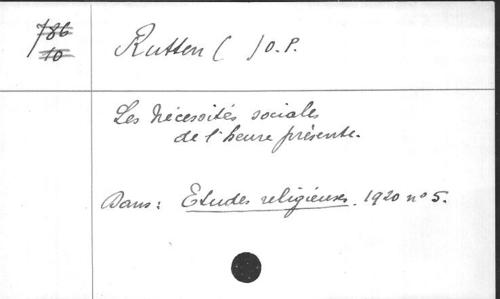 786
10
Rutten ( ) O.P.
Les Nécessités sociales
de l'heure présente.
Dans: Etudes religieuses. 1920 n° 5.